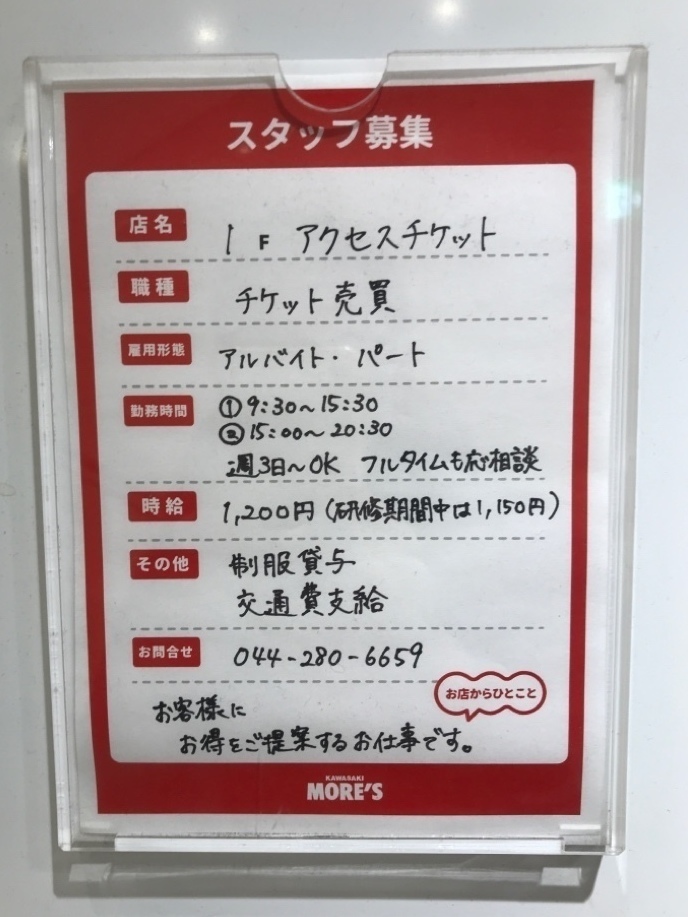 スタッフ募集
店名 1F アクセスチケット
職種 チケット売買
雇用形態 アルバイト・パート
勤務時間 ①9:30～15:30
②15:00～20:30
週3日～OK フルタイムも応相談
時給 1,200円(研修期間中は1,150円)
その他 制服貸与
交通費支給
お問合せ 044-280-6659
お店からひとこと
お客様に
お得をご提案するお仕事です。
KAWASAKI
MORE'S